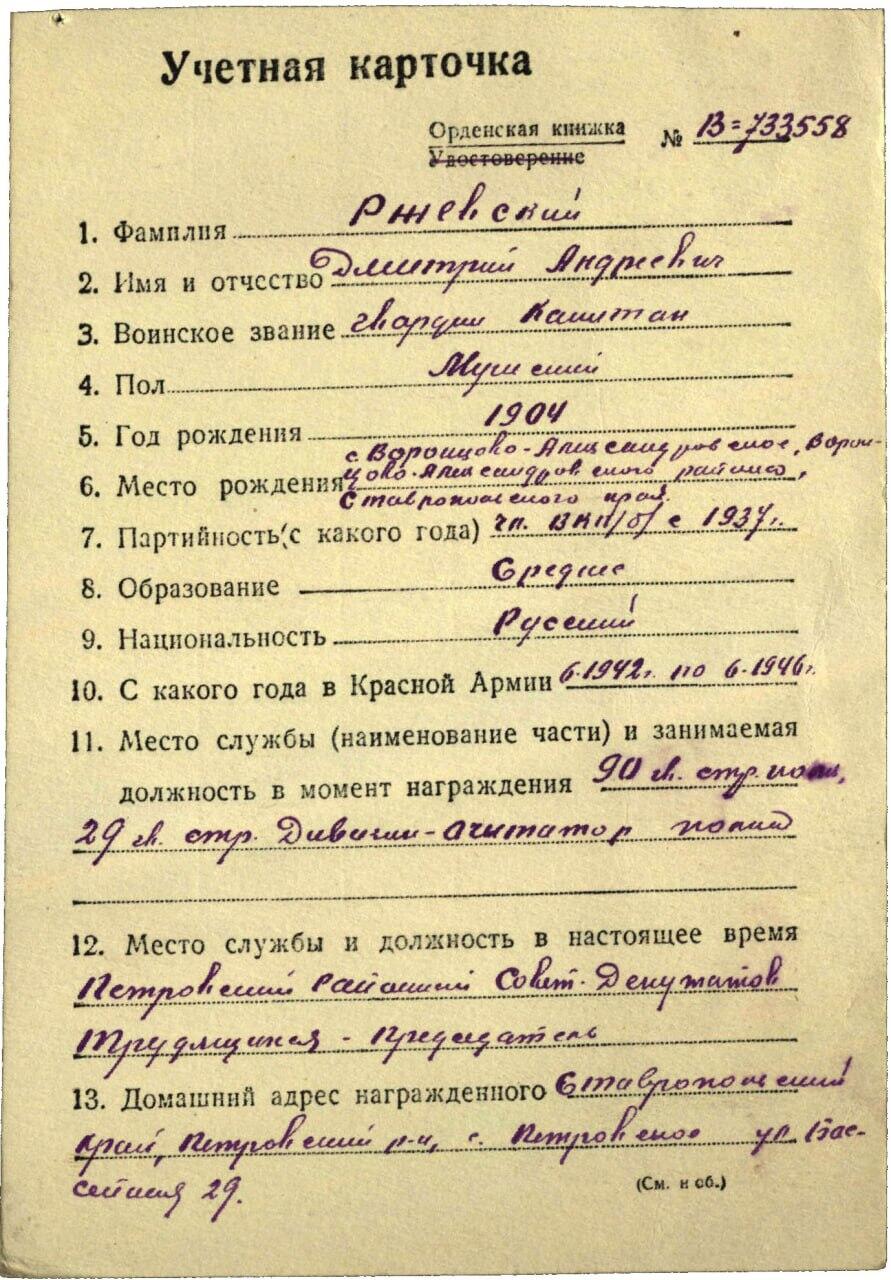 Учетная карточка
Орденская книжка № В=733558
Удостоверение
1. Фамилия Ржевский
2. Имя и отчество Дмитрий Андреевич
3. Воинское звание гвардии Капитан
4. Пол Мужский
5. Год рождения 1904
с. Воронцово-Александровское, Ворон-
6. Место рождения цово-Александровского района,
Ставропольского края.
7. Партийность (с какого года) чл. ВКП/б/ с 1937г.
8. Образование Средне
9. Национальность Русский
10. С какого года в Красной Армии 6.1942г. по 6.1946г.
11. Место службы (наименование части) и занимаемая
должность в момент награждения 90 гв. стр. полк,
29 гв. стр. Дивизии-агитатор полка
12. Место службы и должность в настоящее время
Петровский Районный Совет-Депутатов
Трудящихся - Председатель
13. Домашний адрес награжденного Ставропольский
край, Петровский р-н, с. Петровское ул. Бас-
сейная 29.
(См. н об.)